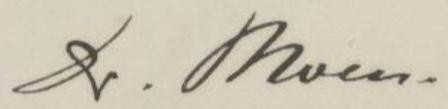 Kr. Moen.